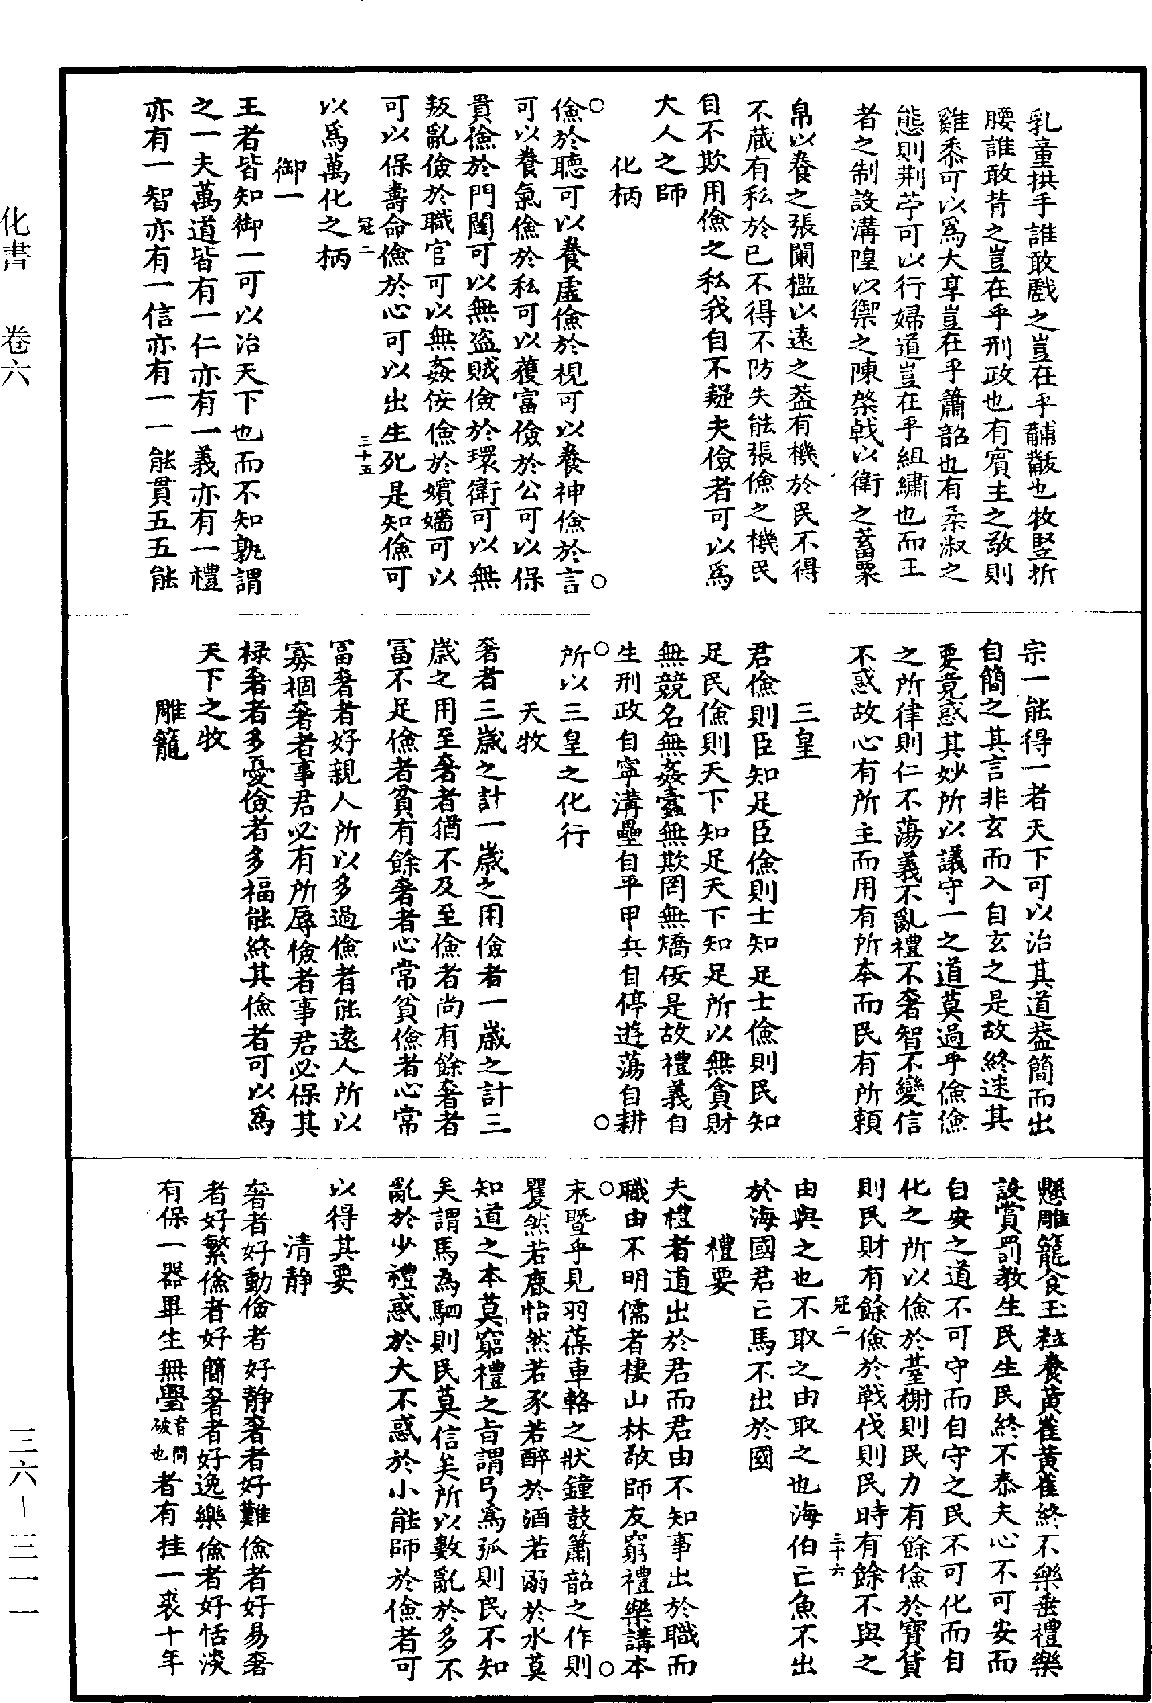 乳童拱手誰敢戲之豈在乎黼黻也牧豎折
腰誰敢背之豈在乎刑政也有賓主之敬則
雞黍可以爲大享豈在乎簫韶也有柔淑之
態則荆苧可以行婦道豈在乎組繡也而王
者之制設溝隍以禦之陳棨戟以衛之蓄粟
帛以養之張闌檻以遠之葢有機於民不得
不藏有私於己不得不防夫能張儉之機民
自不欺用儉之私我自不疑夫儉者可以爲
大人之師
化柄
儉於聽可以養虛儉於視可以養神儉於言
可以養氣儉於私可以獲富儉於公可以保
貴儉於門闥可以無盜賊儉於環衛可以無
叛亂儉於職官可以無姦佞儉於嬪嬙可以
可以保壽命儉於心可以出生死是知儉可
冠二
三十五
以爲萬化之柄
御一
王者皆知御一可以治天下也而不知孰謂
之一夫萬道皆有一仁亦有一義亦有一禮
亦有一智亦有一信亦有一一能貫五五能
宗一能得一者天下可以治其道葢簡而出
自簡之其言非玄而入自玄之是故終迷其
要竟惑其妙所以議守一之道莫過乎儉儉
之所律則仁不蕩義不亂禮不奢智不變信
不惑故心有所主而用有所本而民有所賴
三皇
君儉則臣知足臣儉則士知足士儉則民知
足民儉則天下知足天下知足所以無貪財
無競名無姦蠹無欺罔無矯佞是故禮義自
生刑政自寧溝壘自平甲兵自停遊蕩自耕
所以三皇之化行
天牧
奢者三歲之計一歲之用儉者一歲之計三
歲之用至奢者猶不及至儉者尚有餘奢者
富不足儉者貧有餘奢者心常貧儉者心常
富奢者好親人所以多過儉者能遠人所以
寡禍奢者事君必有所辱儉者事君必保其
禄奢者多憂儉者多福能終其儉者可以爲
天下之牧
雕籠
懸雕籠食玉粒養黃雀黃雀終不樂垂禮樂
設賞罰教生民生民終不泰夫心不可安而
自安之道不可守而自守之民不可化而自
化之所以儉於臺榭則民力有餘儉於寶貨
則民財有餘儉於戰伐則民時有餘不與之
冠二
三十六
由與之也不取之由取之也海伯亡魚不出
於海國君亡馬不出於國
禮要
夫禮者道出於君而君由不知事出於職而
職由不明儒者棲山林敬師友窮禮樂講本
末暨乎見羽葆車輅之狀鐘鼓簫韶之作則
矍然若鹿怡然若豕若醉於酒若溺於水莫
知道之本莫窮禮之旨謂弓爲弧則民不知
矣謂馬爲駟則民莫信矣所以數亂於多不
亂於少禮惑於大不惑於小能師於儉者可
以得其要
清静
奢者好動儉者好静奢者好難儉者好易奢
者好繁儉者好簡奢者好逸樂儉者好恬淡
有保一器畢生無璺音問破也者有挂一裘十年
化書　卷六
三六－三一一